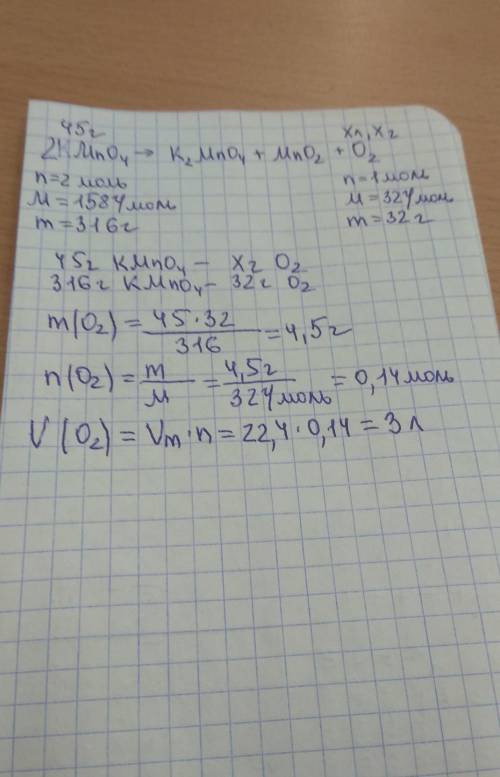 45г Xл, Xг
2KMnO₄ → K₂MnO₄ + MnO₂ + O₂
n=2 моль n=1 моль
M=158г/моль M=32г/моль
m=316г m=32г
45г KMnO₄ — Xг O₂
316г KMnO₄ — 32г O₂
m(O₂) = 45·32/316 = 4,5г
n(O₂) = m/M = 4,5г/32г/моль = 0,14 моль
V(O₂) = Vm·n = 22,4·0,14 = 3л